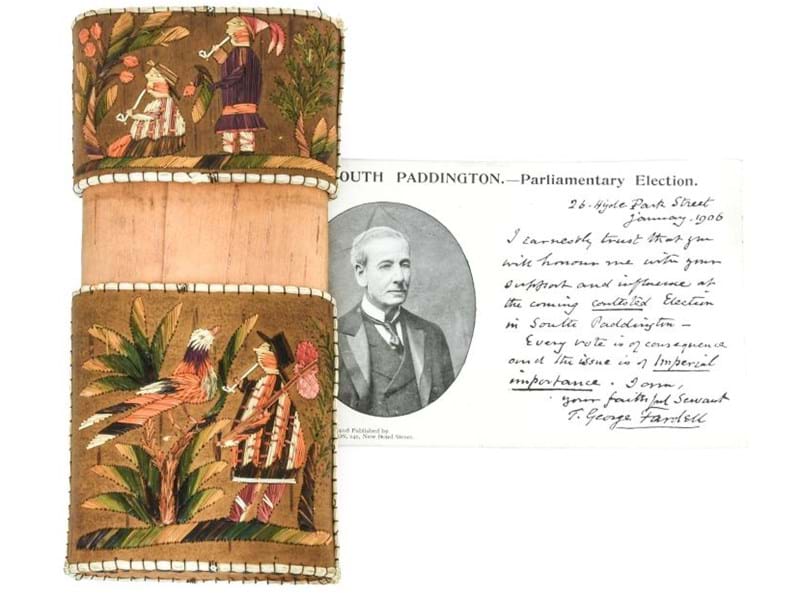 OUTH PADDINGTON.—Parliamentary Election.
26. Hyde Park Street
January. 1906
I earnestly trust that you
will honour me with your
support and influence at
the coming contested Election
in South Paddington —
Every vote is of consequence
and the issue is of Imperial
importance. I am,
your faithful Servant
T. George Fardell
and Published by
ON, 141, New Bond Street.